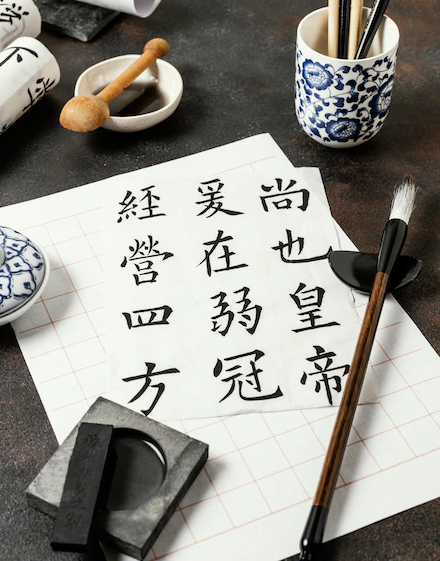 尚也皇帝
爰在弱冠
經營四方